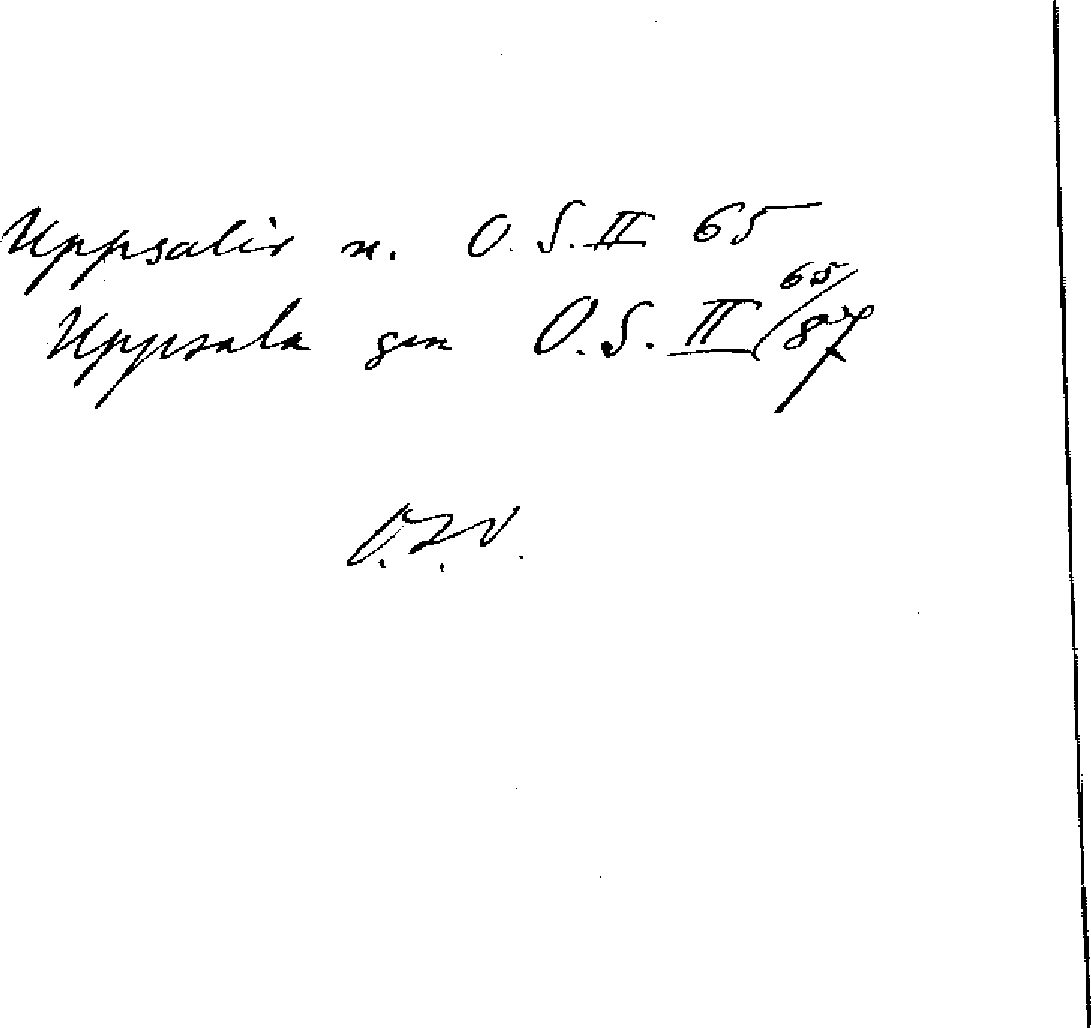 Uppsalir n. O.S. II 65
Uppsala gen O.S. II 65/87